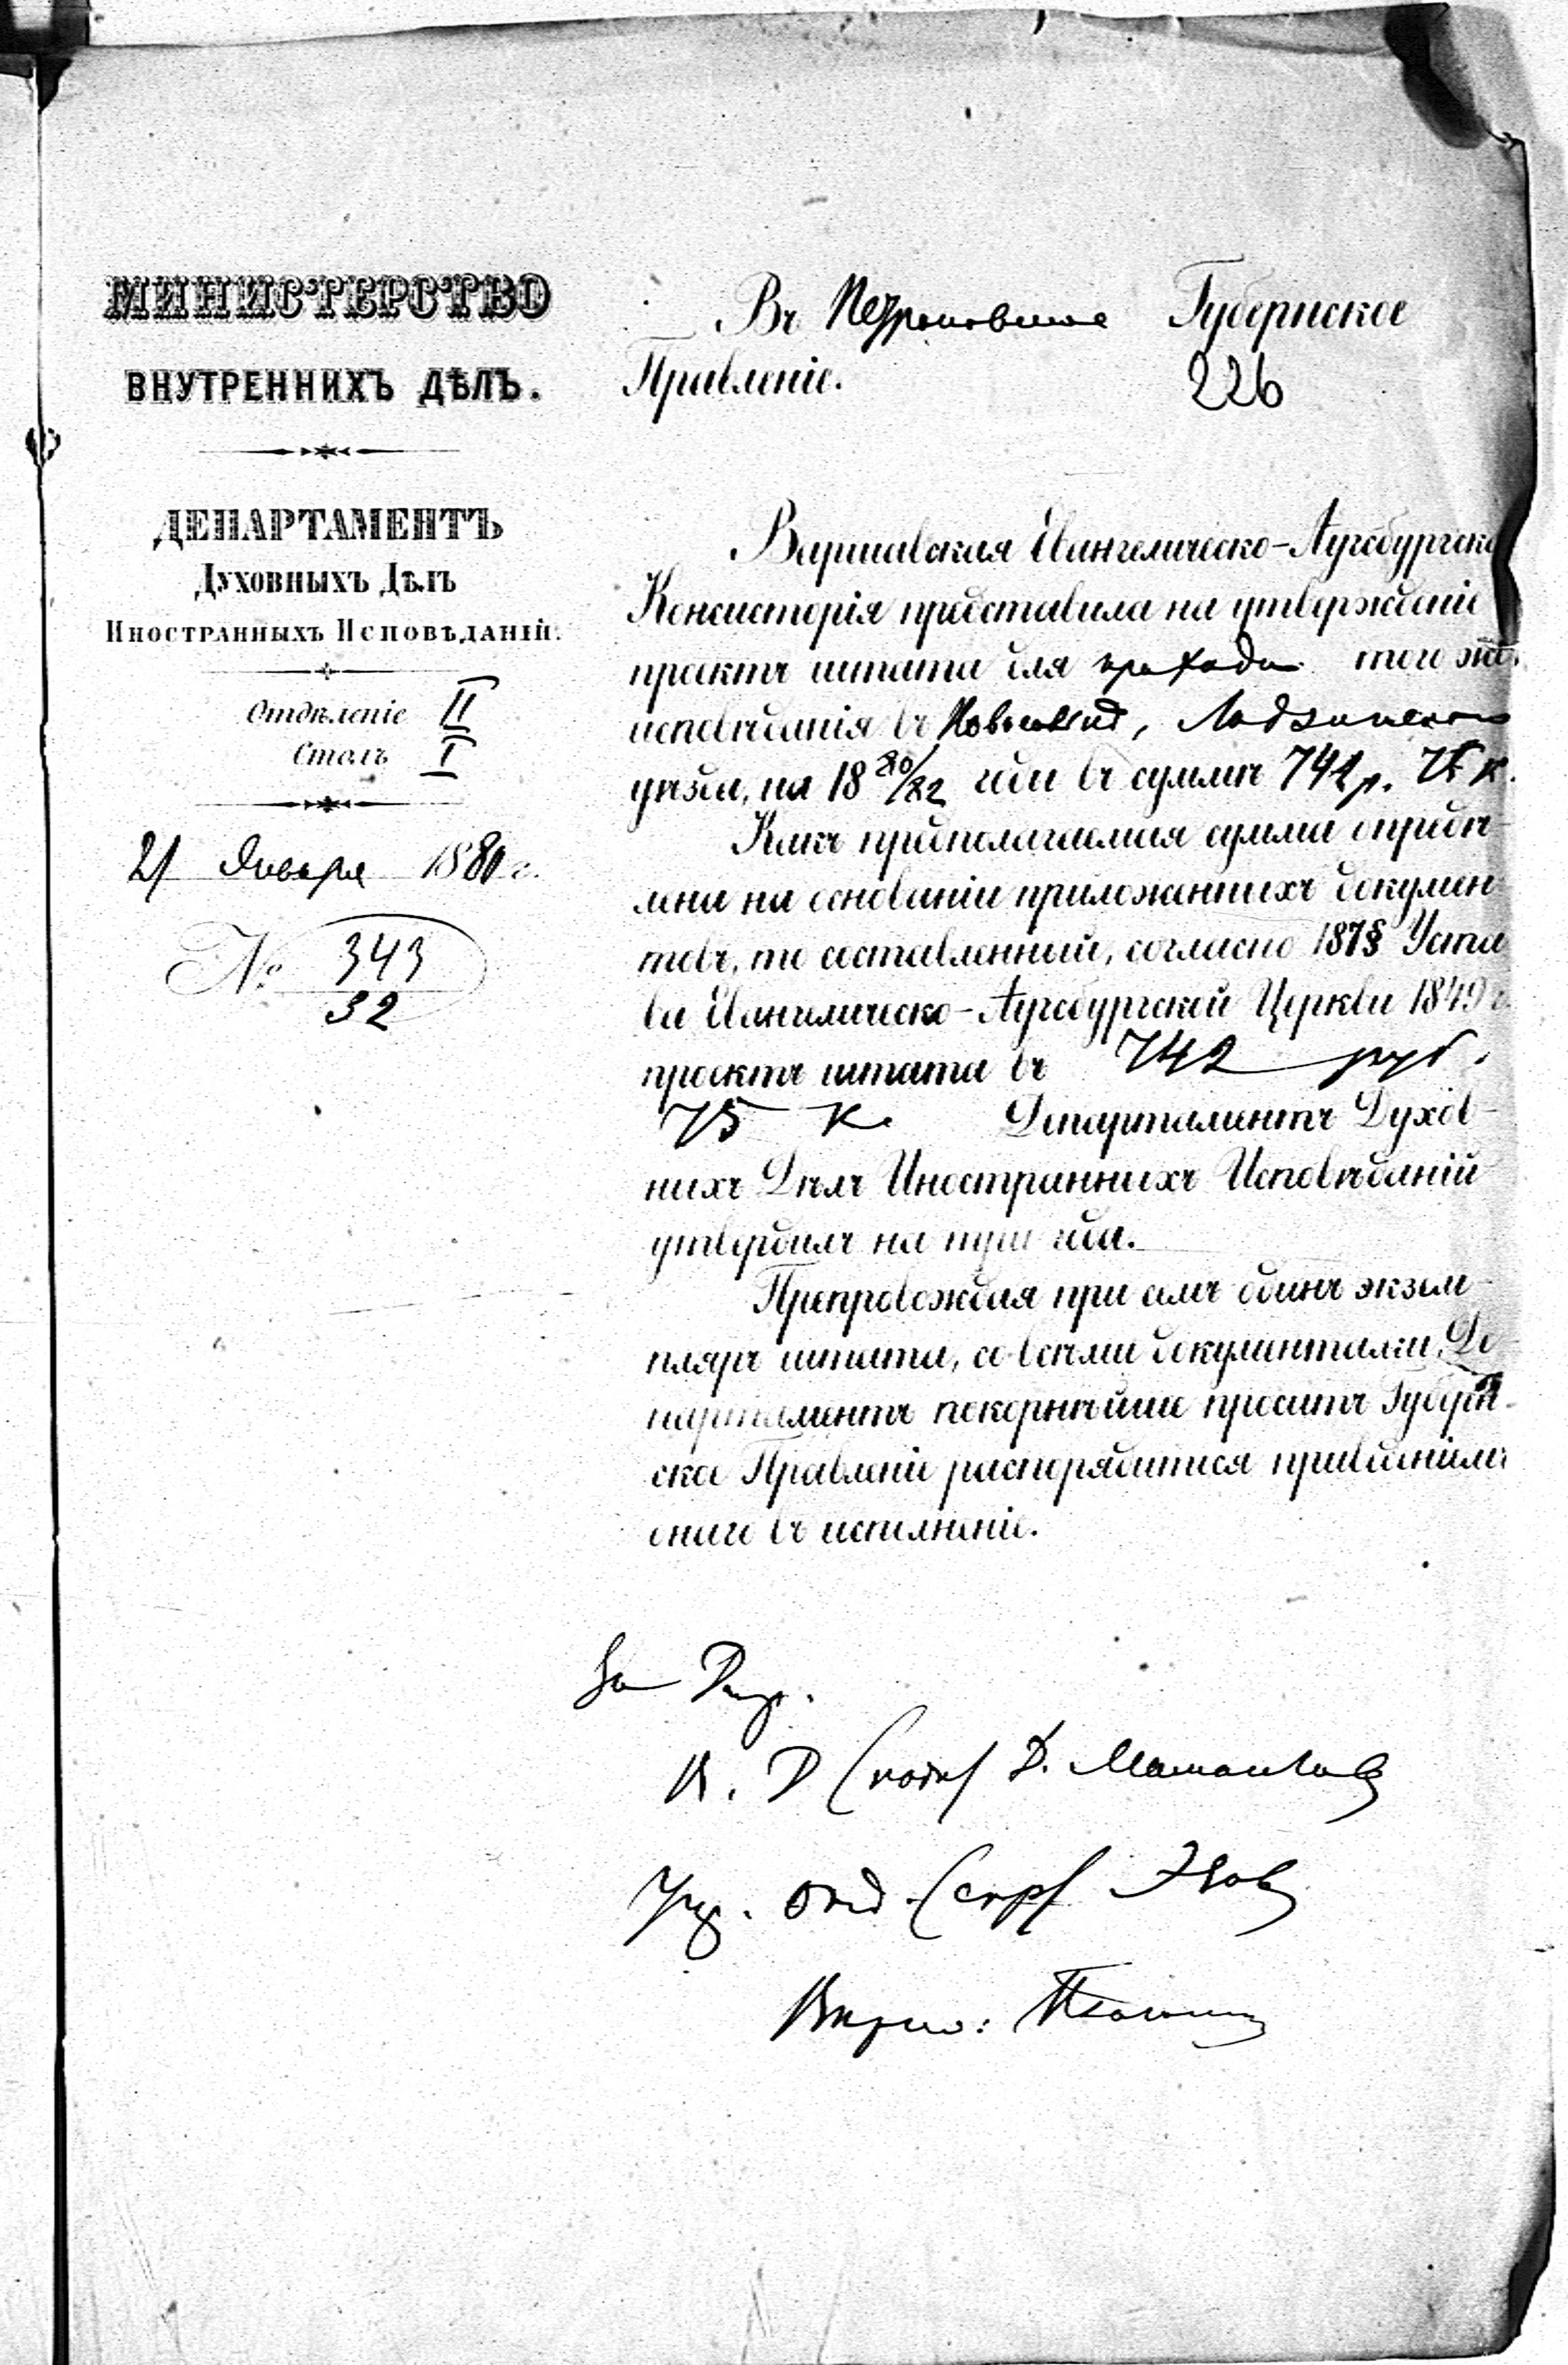 МИНИСТЕРСТВО
ВНУТРЕННИХЪ ДѢЛЪ.
ДЕПАРТАМЕНТЪ
Духовныхъ Дѣлъ
Иностранныхъ Исповѣданій.
Отдѣленіе II
Столъ I
21 Января 1880 г.
№ 343
32
Въ Петроковское Губернское
Правленіе.
226
Варшавская Евангелическо-Аугсбургска
Консисторія представила на утвержденіе
проектъ штата для прихода того же
исповѣданія въ Лодзинскаго
уѣзда, на 18 80/82 года въ суммѣ 742 р. 75 к.
Какъ предполагаемая сумма опредѣ-
лена на основаніи приложенныхъ докумен-
товъ, то составленный, согласно 187 § Уста
ва Евангелическо-Аугсбургской Церкви 1849 г.
проектъ штата въ 742 руб.
75 к. Департаментъ Духов-
ныхъ Дѣлъ Иностранныхъ Исповѣданій
утвердилъ на три года.
Препровождая при семъ одинъ экзем-
пляръ штата, со всѣми документами, Де-
партаментъ покорнѣйше проситъ Губерн-
ское Правленіе распорядиться приведеніемъ
онаго въ исполненіе.
За Дир.
В. Д.
Упр. Отд.
Вѣрно: